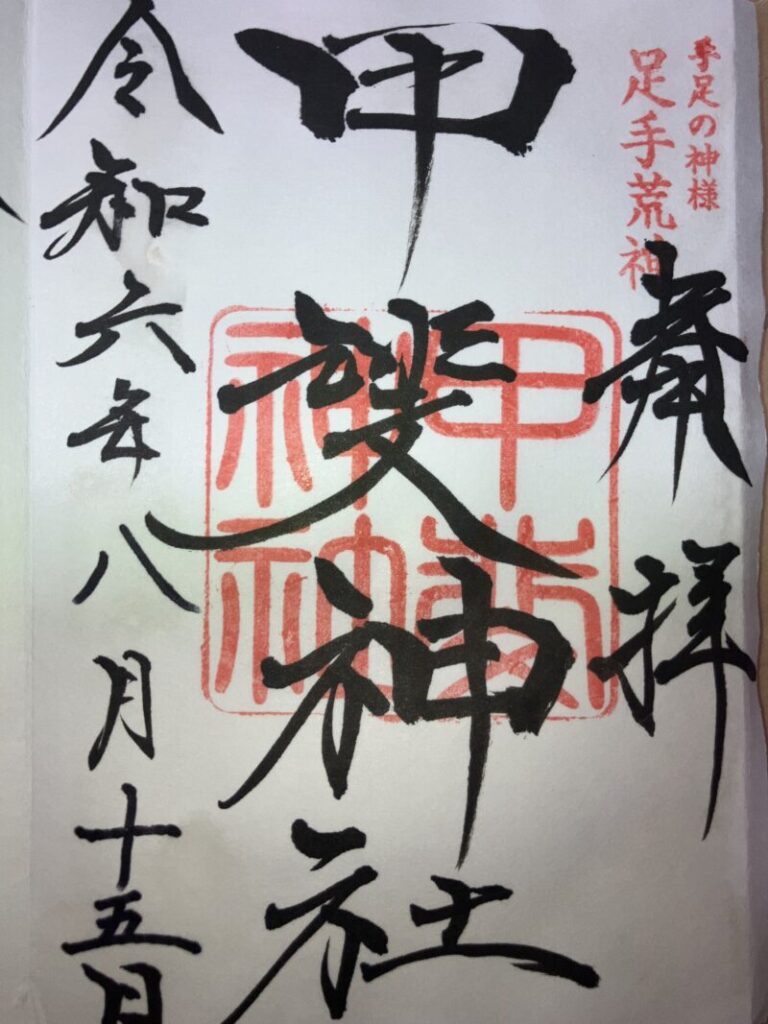 手足の神様
足手荒神
奉拝
甲斐神社
甲斐
神社
令和六年八月十五日